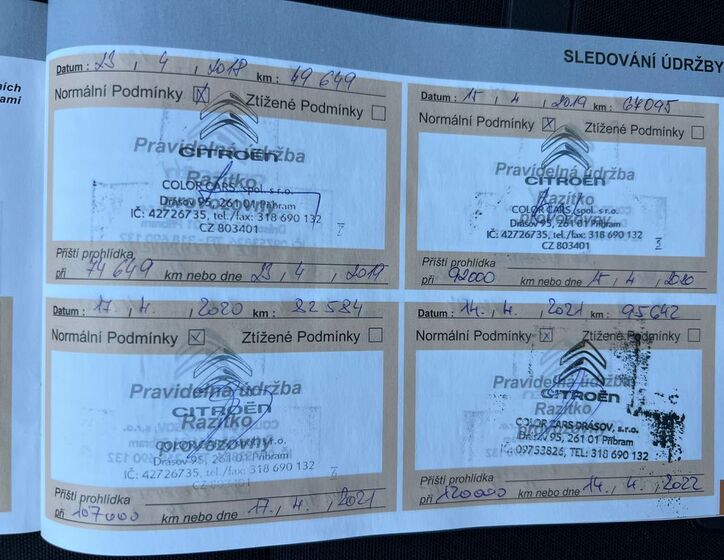 SLEDOVÁNÍ ÚDRŽBY
ních
ami
Datum : 23 , 4 , 2018 km : 49 649
Normální Podmínky X Ztížené Podmínky
Pravidelná údržba
Razítko
provozovny
CITROËN
COLOR CARS spol. s r.o.
Drásov 95, 261 01 Příbram
IČ: 42726735, tel./fax: 318 690 132
CZ 803401
Příští prohlídka
při 74 649 km nebo dne 23 , 4 , 2019
Datum : 15 , 4 , 2019 km : 67095
Normální Podmínky X Ztížené Podmínky
Pravidelná údržba
Razítko
provozovny
CITROËN
COLOR CARS spol. s r.o.
Drásov 95, 261 01 Příbram
IČ: 42726735, tel./fax: 318 690 132
CZ 803401
Příští prohlídka
při 92000 km nebo dne 15 , 4 , 2020
Datum : 17 , 4. , 2020 km : 82 584
Normální Podmínky Ztížené Podmínky
Pravidelná údržba
Razítko
provozovny
CITROËN
Drásov 95, 261 01 Příbram
IČ: 42726735, tel./fax: 318 690 132
CZ 803401
Příští prohlídka
při 107000 km nebo dne 17. , 4. , 2021
Datum : 14. , 4. , 2021 km : 95642
Normální Podmínky X Ztížené Podmínky
Pravidelná údržba
Razítko
CITROËN
COLOR CARS DRÁSOV, s.r.o.
Drásov 95, 261 01 Příbram
IČ: 09753826, TEL.: 318 690 132
Příští prohlídka
při 120000 km nebo dne 14. , 4. , 2022